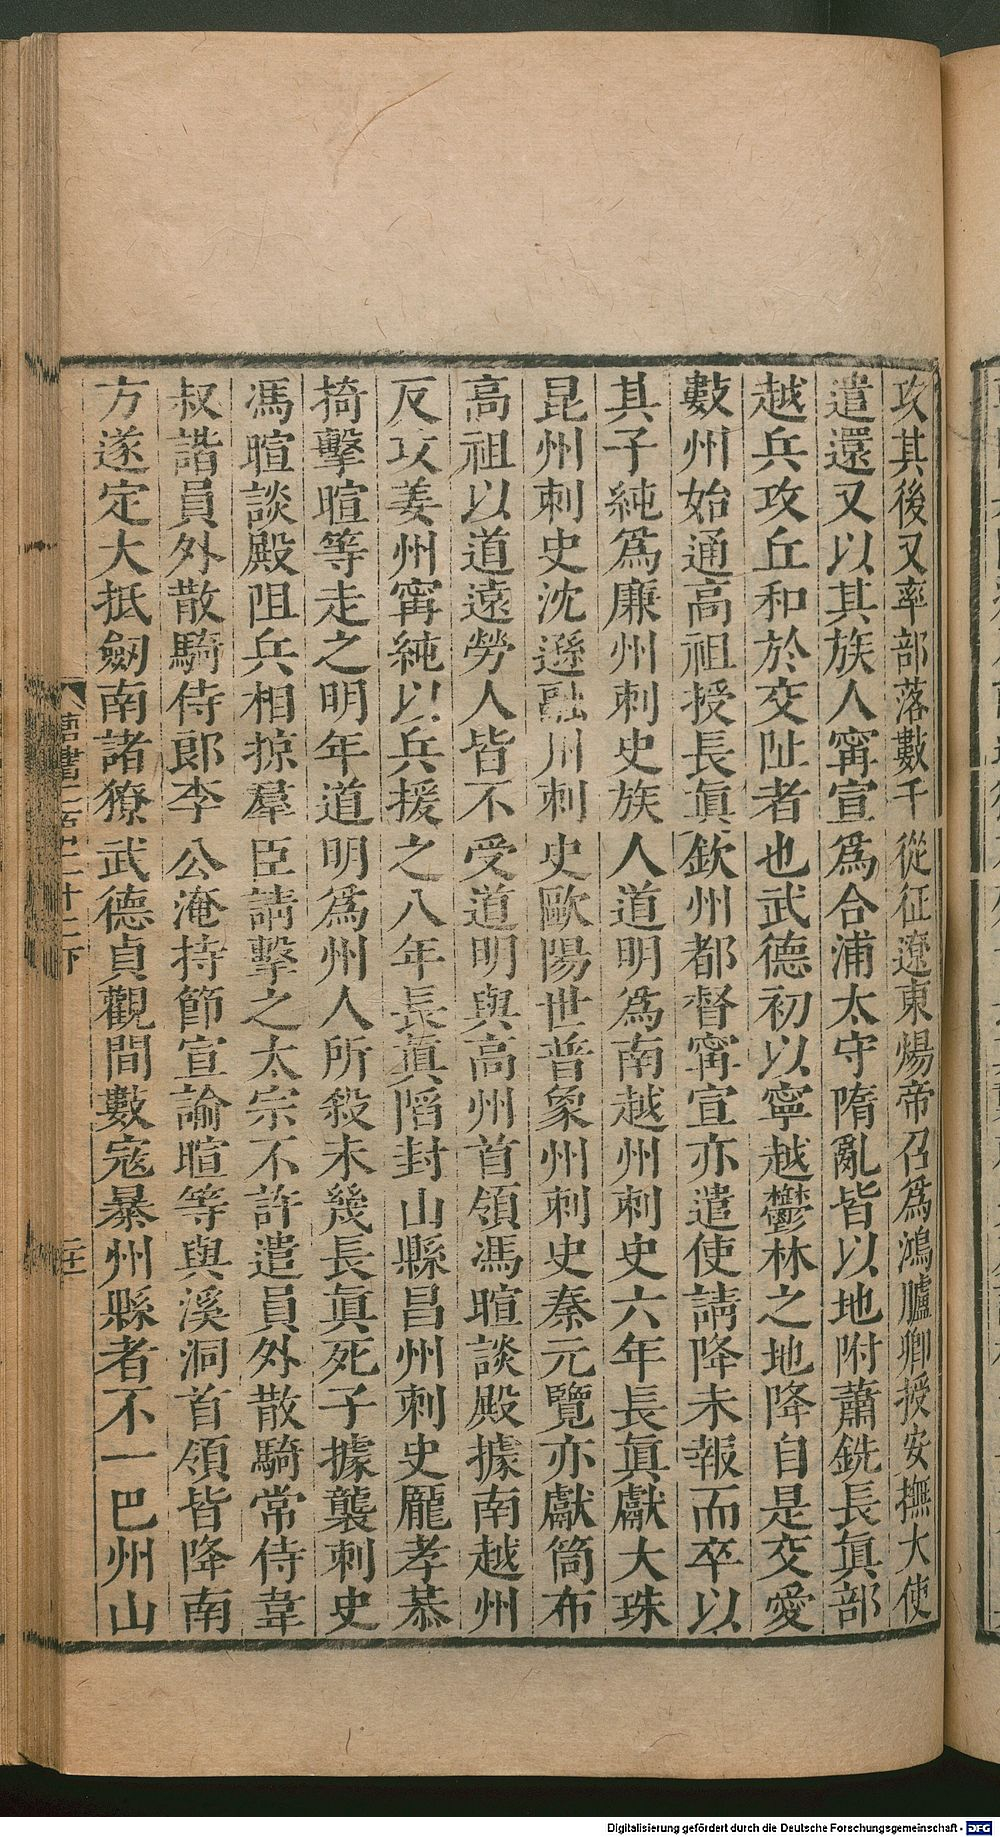 攻其後又率部落數千從征遼東煬帝召爲鴻臚卿授安撫大使
遣還又以其族人甯宣爲合浦太守隋亂皆以地附蕭銑長眞部
越兵攻丘和於交趾者也武德初以寧越鬱林之地降自是交愛
數州始通高祖授長眞欽州都督甯宣亦遣使請降未報而卒以
其子純爲廉州刺史族人道明爲南越州刺史六年長眞獻大珠
昆州刺史沈遜融州刺史歐陽世普象州刺史秦元覽亦獻筒布
高祖以道遠勞人皆不受道明與高州首領馮暄談殿據南越州
反攻姜州甯純以兵援之八年長眞陷封山縣昌州刺史龐孝恭
掎擊暄等走之明年道明爲州人所殺未幾長眞死子據襲刺史
馮暄談殿阻兵相掠羣臣請擊之太宗不許遣員外散騎常侍韋
叔諧員外散騎侍郎李公淹持節宣諭暄等與溪洞首領皆降南
方遂定大抵劒南諸獠武德貞觀間數寇暴州縣者不一巴州山
唐書二百二十二下
Digitalisierung gefördert durch die Deutsche Forschungsgemeinschaft - DFG